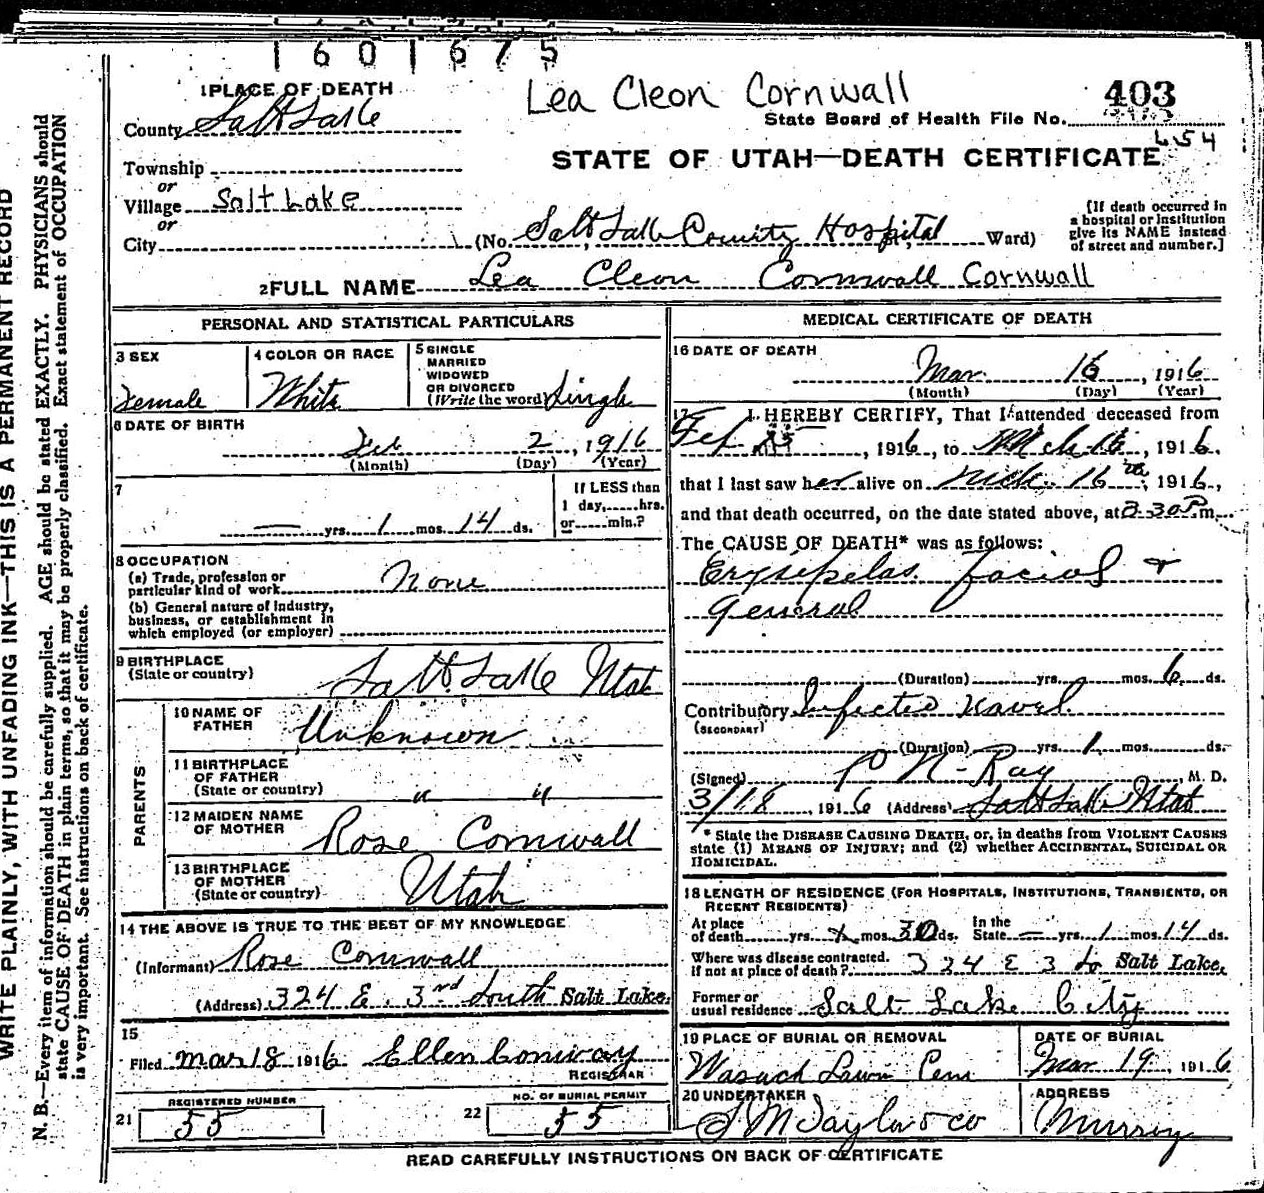 1601675
1 PLACE OF DEATH
Lea Cleon Cornwall
403
County Salt Lake
State Board of Health File No.
654
Township
STATE OF UTAH—DEATH CERTIFICATE
or
Village Salt Lake
or
City (No. Salt Lake County Hospital Ward)
[If death occurred in
a hospital or institution
give its NAME instead
of street and number.]
2 FULL NAME Lea Cleon Cornwall Cornwall
PERSONAL AND STATISTICAL PARTICULARS
3 SEX
Female
4 COLOR OR RACE
White
5 SINGLE
MARRIED
WIDOWED
OR DIVORCED
(Write the word) Single
6 DATE OF BIRTH
Feb 2, 1916
(Month) (Day) (Year)
7
— yrs. 1 mos. 14 ds.
If LESS than
1 day, hrs.
or min.?
8 OCCUPATION
(a) Trade, profession or
particular kind of work None
(b) General nature of industry,
business, or establishment in
which employed (or employer)
9 BIRTHPLACE
(State or country) Salt Lake Utah
PARENTS
10 NAME OF
FATHER Unknown
11 BIRTHPLACE
OF FATHER
(State or country) " "
12 MAIDEN NAME
OF MOTHER Rose Cornwall
13 BIRTHPLACE
OF MOTHER
(State or country) Utah
14 THE ABOVE IS TRUE TO THE BEST OF MY KNOWLEDGE
(Informant) Rose Cornwall
(Address) 324 E. 3rd South Salt Lake.
15
Filed Mar 18 1916 Ellen Conway
REGISTRAR
REGISTERED NUMBER
21 55
NO. OF BURIAL PERMIT
22 55
MEDICAL CERTIFICATE OF DEATH
16 DATE OF DEATH
Mar. 16, 1916
(Month) (Day) (Year)
17 I HEREBY CERTIFY, That I attended deceased from
Feb 15, 1916, to Mch 16, 1916.
that I last saw her alive on Mch. 16th, 1916,
and that death occurred, on the date stated above, at 2-30 P m.
The CAUSE OF DEATH* was as follows:
Erysipelas. facial +
General
(Duration) yrs. mos. 6 ds.
Contributory Infected Navel
(SECONDARY)
(Duration) yrs. 1 mos. ds.
(Signed) P N Ray, M. D.
3/18, 1916 (Address) Salt Lake Utah
* State the DISEASE CAUSING DEATH, or, in deaths from VIOLENT CAUSES
state (1) MEANS OF INJURY; and (2) whether ACCIDENTAL, SUICIDAL OR
HOMICIDAL.
18 LENGTH OF RESIDENCE (FOR HOSPITALS, INSTITUTIONS, TRANSIENTS, OR
RECENT RESIDENTS)
At place
of death yrs. mos. 30 ds. In the
State — yrs. 1 mos. 14 ds.
Where was disease contracted.
if not at place of death? 324 E 3 So Salt Lake,
Former or
usual residence Salt Lake City
19 PLACE OF BURIAL OR REMOVAL
Wasach Lawn Cem
DATE OF BURIAL
Mar 19, 1916
20 UNDERTAKER
S M Taylor & co
ADDRESS
Murray
READ CAREFULLY INSTRUCTIONS ON BACK OF CERTIFICATE
WRITE PLAINLY, WITH UNFADING INK—THIS IS A PERMANENT RECORD
N. B.—Every item of information should be carefully supplied. AGE should be stated EXACTLY. PHYSICIANS should
state CAUSE OF DEATH in plain terms, so that it may be properly classified. Exact statement of OCCUPATION
is very important. See instructions on back of certificate.